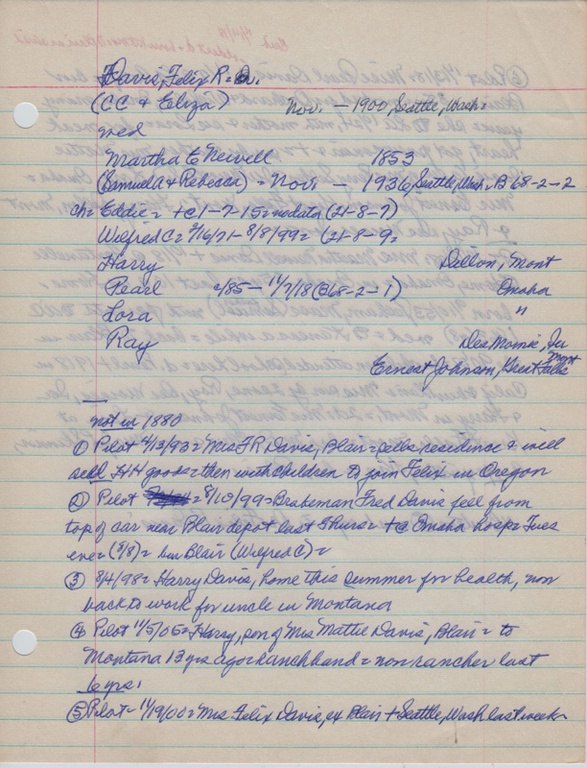 Davis, Felix R. = Dr.
(CC & Eliza) Nov. - 1900, Seattle, Wash.
wed
Martha E Newell 1853
(Samuel A & Rebecca) = Nov. - 1936, Seattle, Wash = B 68-2-2
ch = Eddie = +c 1-7-15 = no data (21-8-7)
Wilfred C = 2/16/71 - 8/8/99 = (21-8-9=
Harry Dillon, Mont
Pearl 2/85 - 11/7/18 (B68-2-1) Omaha
Lora "
Ray Des Moines, Ia
Ernest Johnson, Great Falls Mont
not in 1880
① Pilot 4/13/93 = Mrs F R Davis, Blair = sells residence & will
sell HH goods = then with children to join Felix in Oregon
② Pilot 8/10/99 = Brakeman Fred Davis fell from
top of car near Blair depot last Thurs = +c Omaha hosp = Tues
eve (8/8) = bur Blair (Wilfred C) =
③ 8/4/98 = Harry Davis, home this summer for health, now
back to work for uncle in Montana
④ Pilot 11/5/05 = Harry, son of Mrs Mattie Davis, Blair = to
Montana 13 yrs ago = ranch hand = now rancher last
6 yrs.
⑤ Pilot - 11/19/00 = Mrs Felix Davis, ex Blair + Seattle, Wash last week =